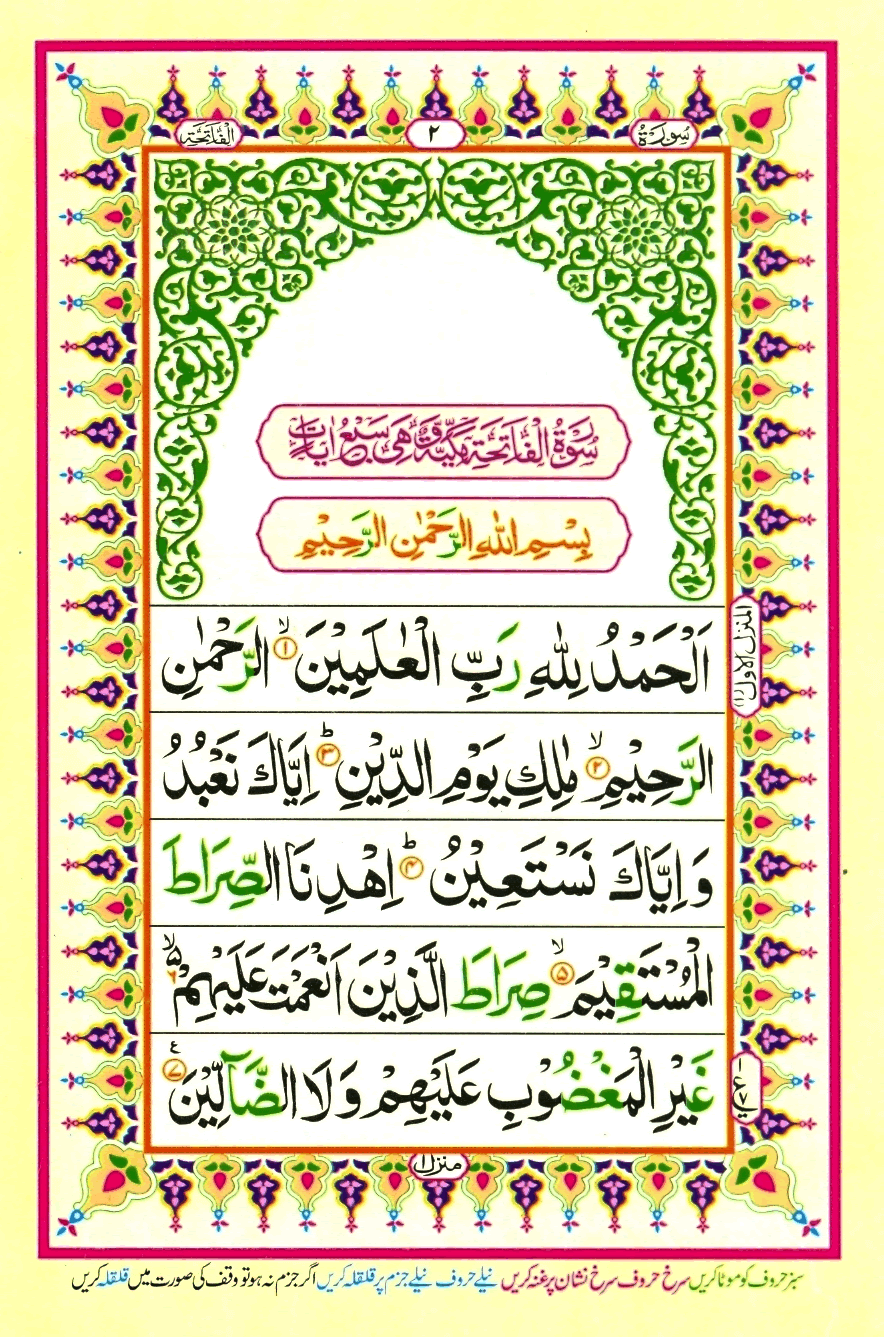 سُوْرَةُ
٢
الْفَاتِحَة
سُوْرَةُ الْفَاتِحَةِ مَكِّيَّةٌ وَّهِيَ سَبْعُ اٰيَاتٍ
بِسْمِ اللّٰهِ الرَّحْمٰنِ الرَّحِيْمِ
اَلْحَمْدُ لِلّٰهِ رَبِّ الْعٰلَمِيْنَ ۙ﴿۱﴾ الرَّحْمٰنِ
الرَّحِيْمِ ۙ﴿۲﴾ مٰلِكِ يَوْمِ الدِّيْنِ ؕ﴿۳﴾ اِيَّاكَ نَعْبُدُ
وَ اِيَّاكَ نَسْتَعِيْنُ ؕ﴿۴﴾ اِهْدِنَا الصِّرَاطَ
الْمُسْتَقِيْمَ ۙ﴿۵﴾ صِرَاطَ الَّذِيْنَ اَنْعَمْتَ عَلَيْهِمْ ۙ۵ ۶
غَيْرِ الْمَغْضُوْبِ عَلَيْهِمْ وَ لَا الضَّآلِّيْنَ ﴿۷﴾ ع
المنزل الاول (۱)
منزل ۱
سبز حروف کو موٹا کریں سرخ حروف سرخ نشان پر غنہ کریں نیلے حروف نیلے جزم پر قلقلہ کریں اگر جزم نہ ہو تو وقف کی صورت میں قلقلہ کریں